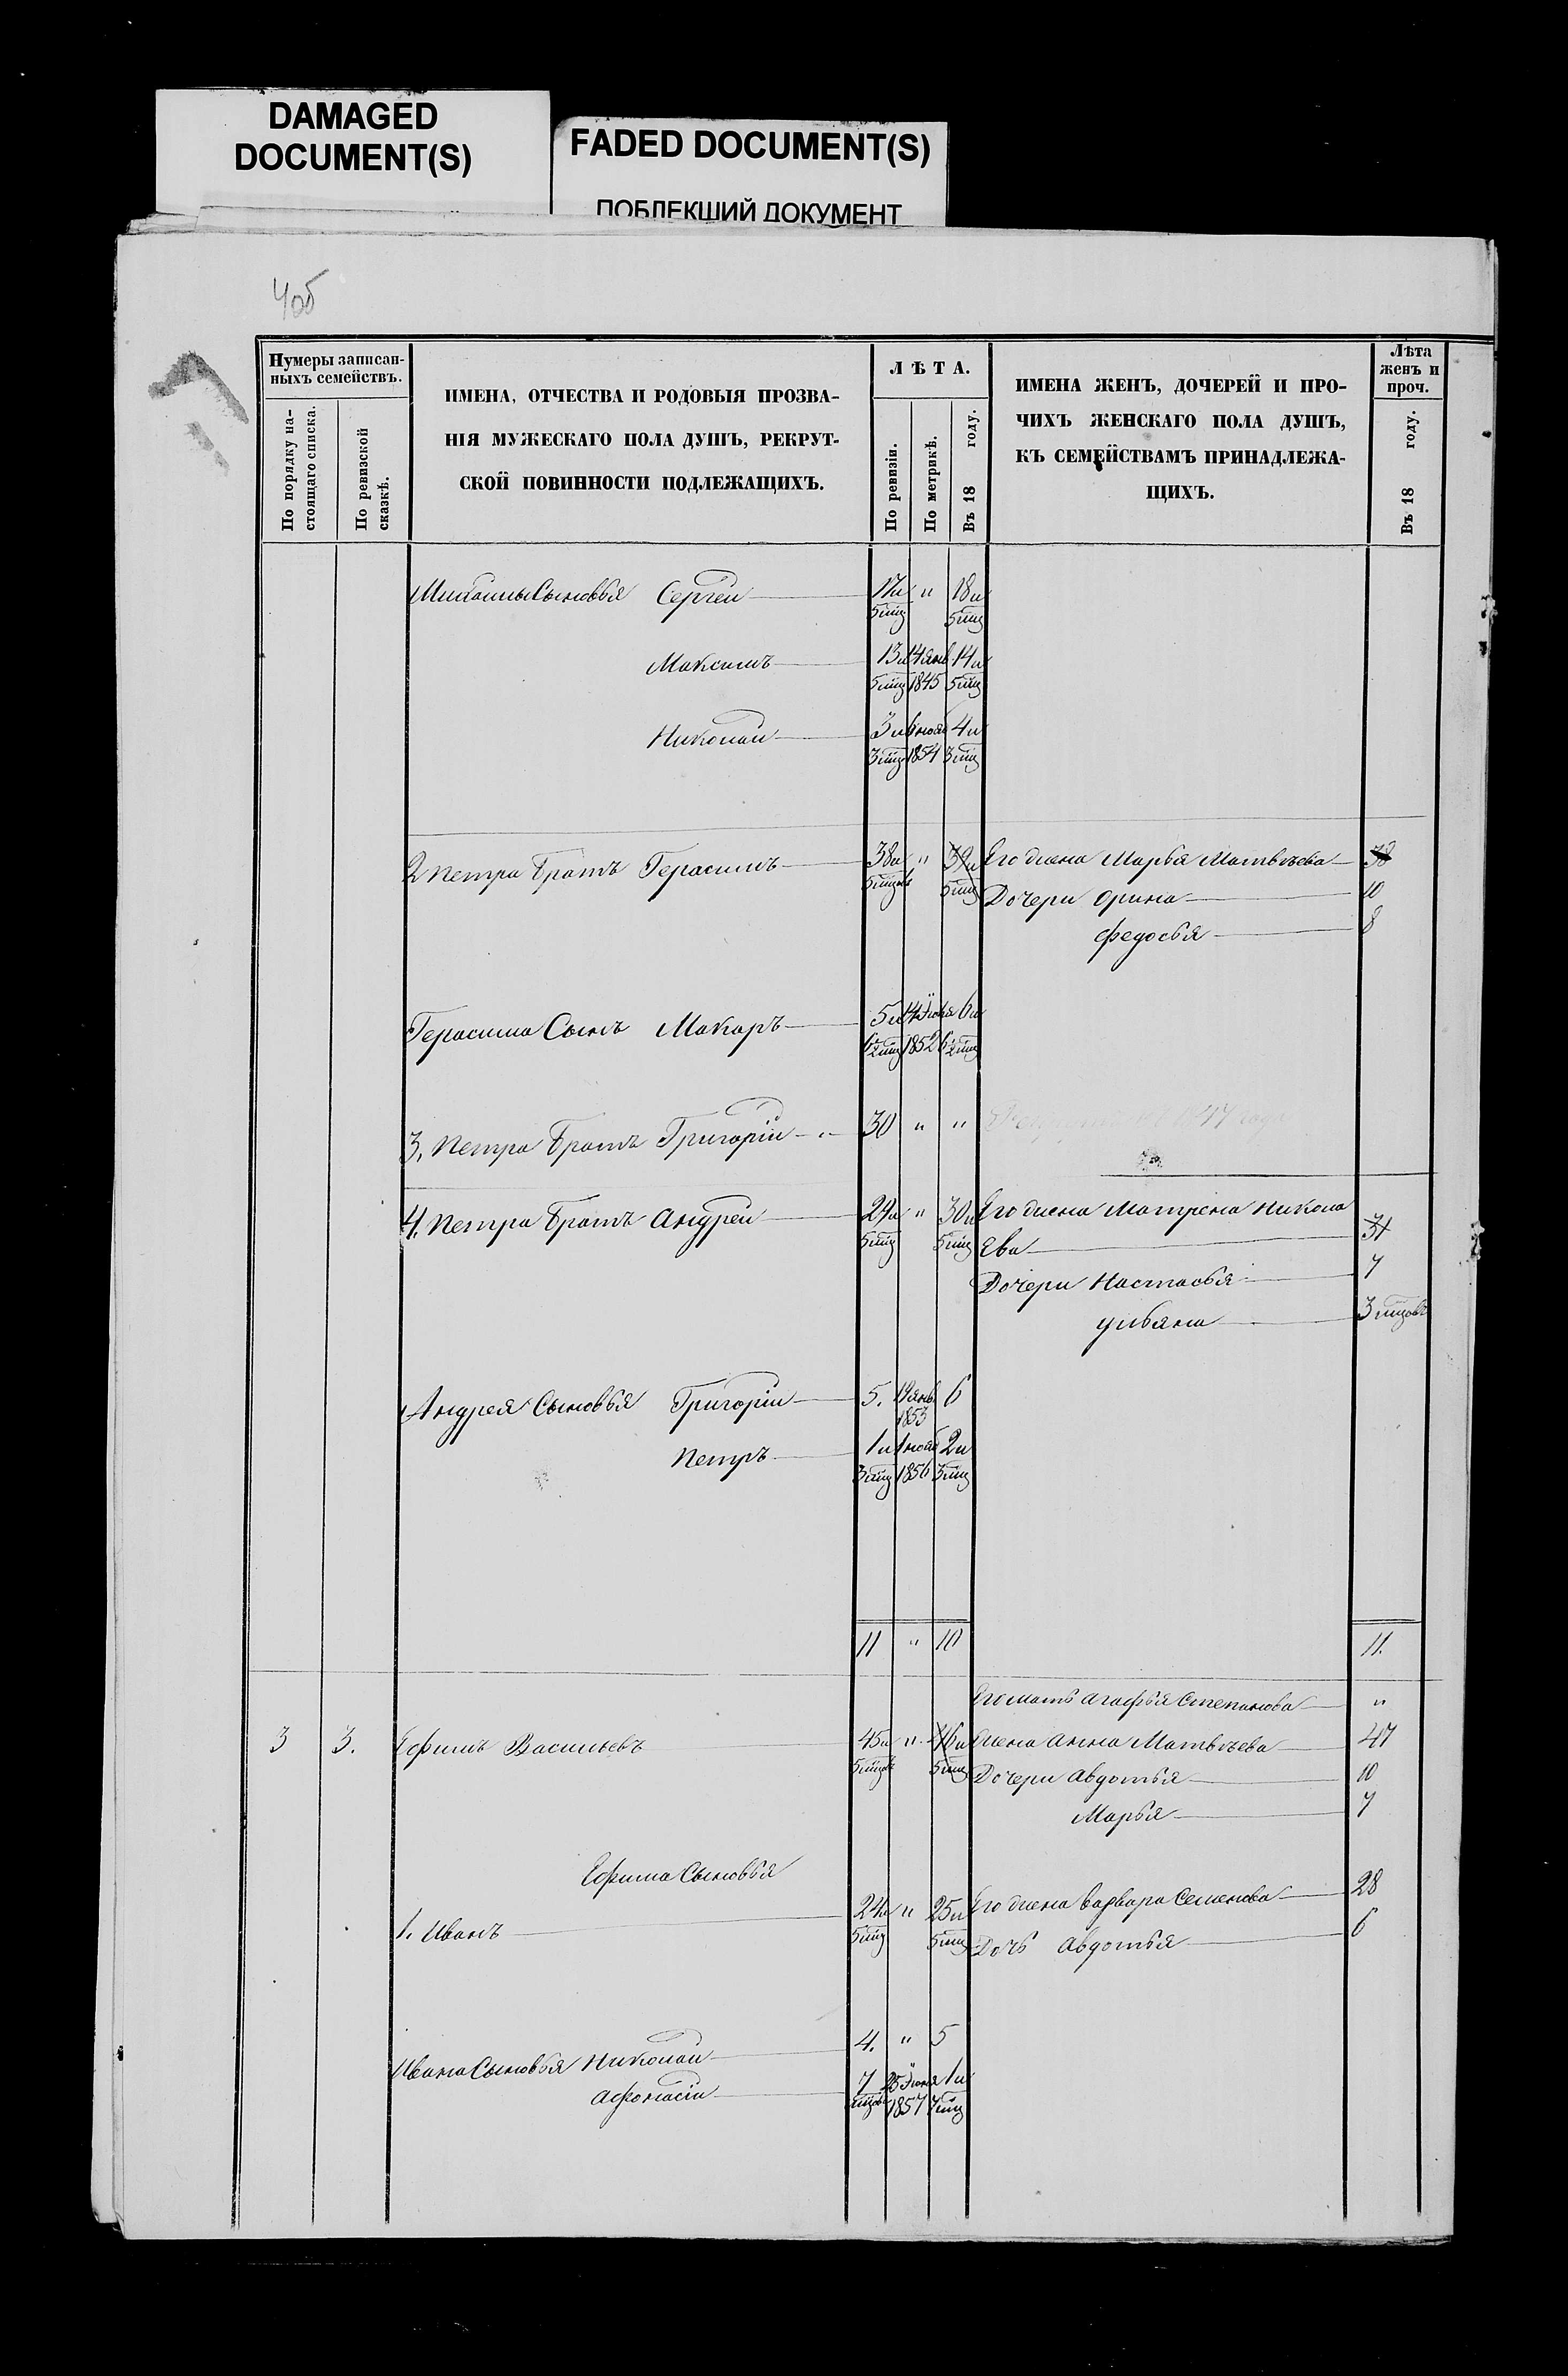 DAMAGED
DOCUMENT(S)
FADED DOCUMENT(S)
ПОБЛЕКШИЙ ДОКУМЕНТ
4об
Нумеры записан-
ныхъ семействъ.
По порядку на-
стоящаго списка.
По ревизской
сказкѣ.
ИМЕНА, ОТЧЕСТВА И РОДОВЫЯ ПРОЗВА-
НІЯ МУЖЕСКАГО ПОЛА ДУШЪ, РЕКРУТ-
СКОЙ ПОВИННОСТИ ПОДЛЕЖАЩИХЪ.
ЛѢТА.
По ревизіи.
По метрикѣ.
Въ 18 году.
ИМЕНА ЖЕНЪ, ДОЧЕРЕЙ И ПРО-
ЧИХЪ ЖЕНСКАГО ПОЛА ДУШЪ,
КЪ СЕМЕЙСТВАМЪ ПРИНАДЛЕЖА-
ЩИХЪ.
Лѣта
женъ и
проч.
Въ 18 году.
Сыновья Сергей 17и " 18и
5мц 5мц
Максимъ 13и 14 янв 14и
5мц 1845 5мц
Николай 3и 6 нояб 4и
3мц 1854 3мц
2 Петра братъ Герасимъ 38и " 39и Его жена Марья Матвѣева 38
5мцовъ 5мц Дочери Орина 10
Федосья 8
Герасима Сынъ Макаръ 5и 14 Іюня 6и
6½мц 1852 6½мц
3, Петра братъ Григорій " 30 " " 1847 года
4, Петра братъ Андрей 29и " 30и Его жена Матрена Никола
5мц 5мц Ева 31
Дочери Настасья 7
Ульяна 3 мцовъ
Андрея Сыновья Григорій 5. 19 янв 6
1853
Петръ 1и 1 нояб 2и
3мц 1856 3мц
11 " 10 11.
Его мать Агафья Степанова "
3 3. Ефимъ Васильевъ 45и " 46и Жена Анна Матвѣева 47
5мцовъ 5мц Дочери Авдотья 10
Марья 7
Ефима Сыновья
1. Иванъ 24и " 25и Его жена Варвара Семенова 28
5мц 5мц Дочь Авдотья 6
Ивана Сыновья Николай 4. " 5
Афонасій 7 25 Іюня 1и
мцовъ 1857 7мц